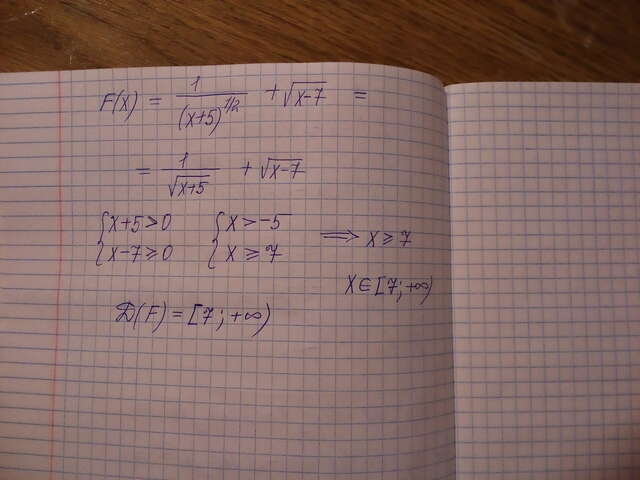 F(x) = 1/(x+5)^1/2 + √x-7 =
= 1/√x+5 + √x-7
{x+5>0 {x>-5
{x-7⩾0 {x⩾7 ⟹ x⩾7
x∈[7;+∞)
D(F)=[7;+∞)